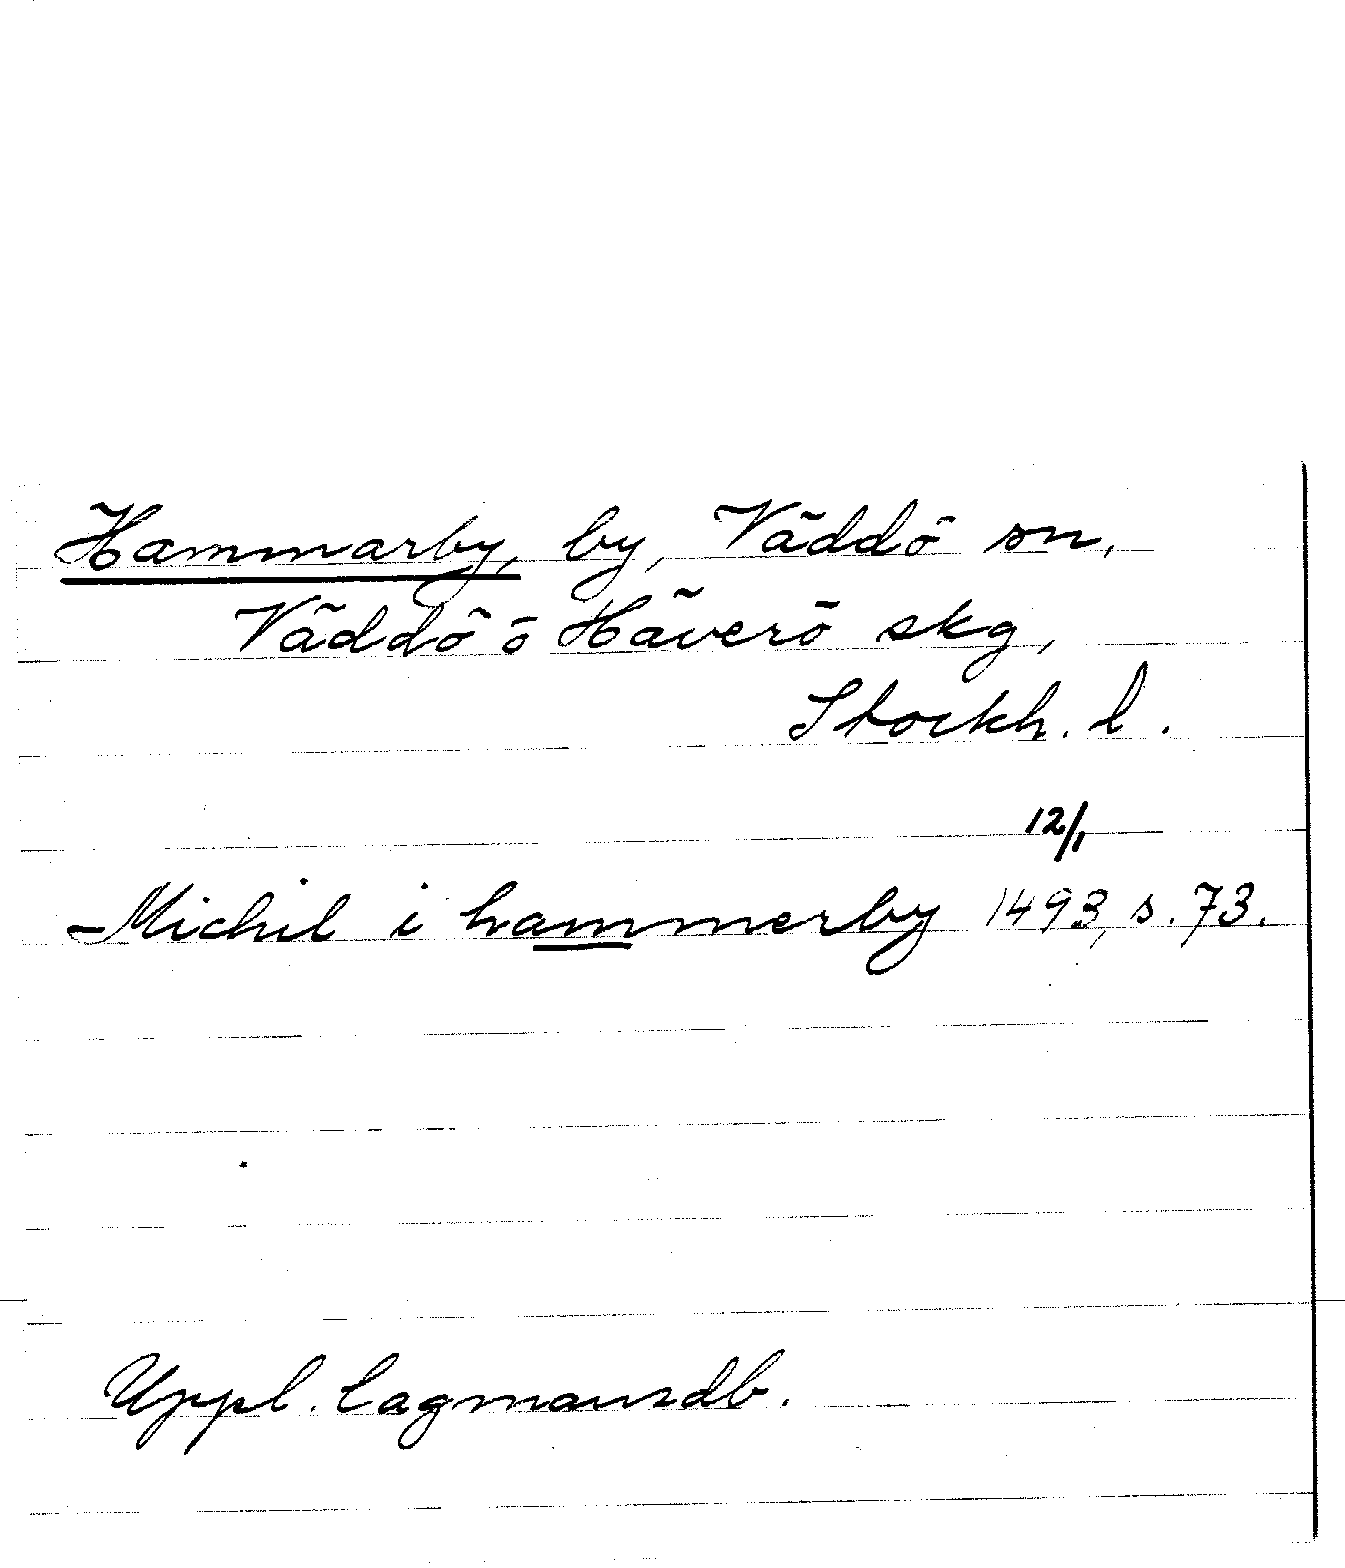 Hammarby, by, Väddö sn,
Väddö o Häverö skg,
Stockh. l.
12/1
Michil i hammerby 1493, s. 73.
Uppl. lagmansdb.